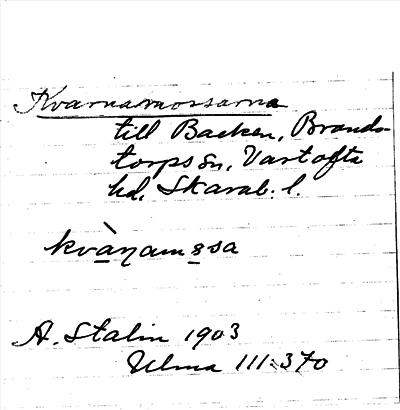 Kvarnamossarna
till Backen, Brands-
torps sn, Vartofta
hd, Skarab. l.
kvàŋamssa
A. Stalin 1903
Ulma 111:370